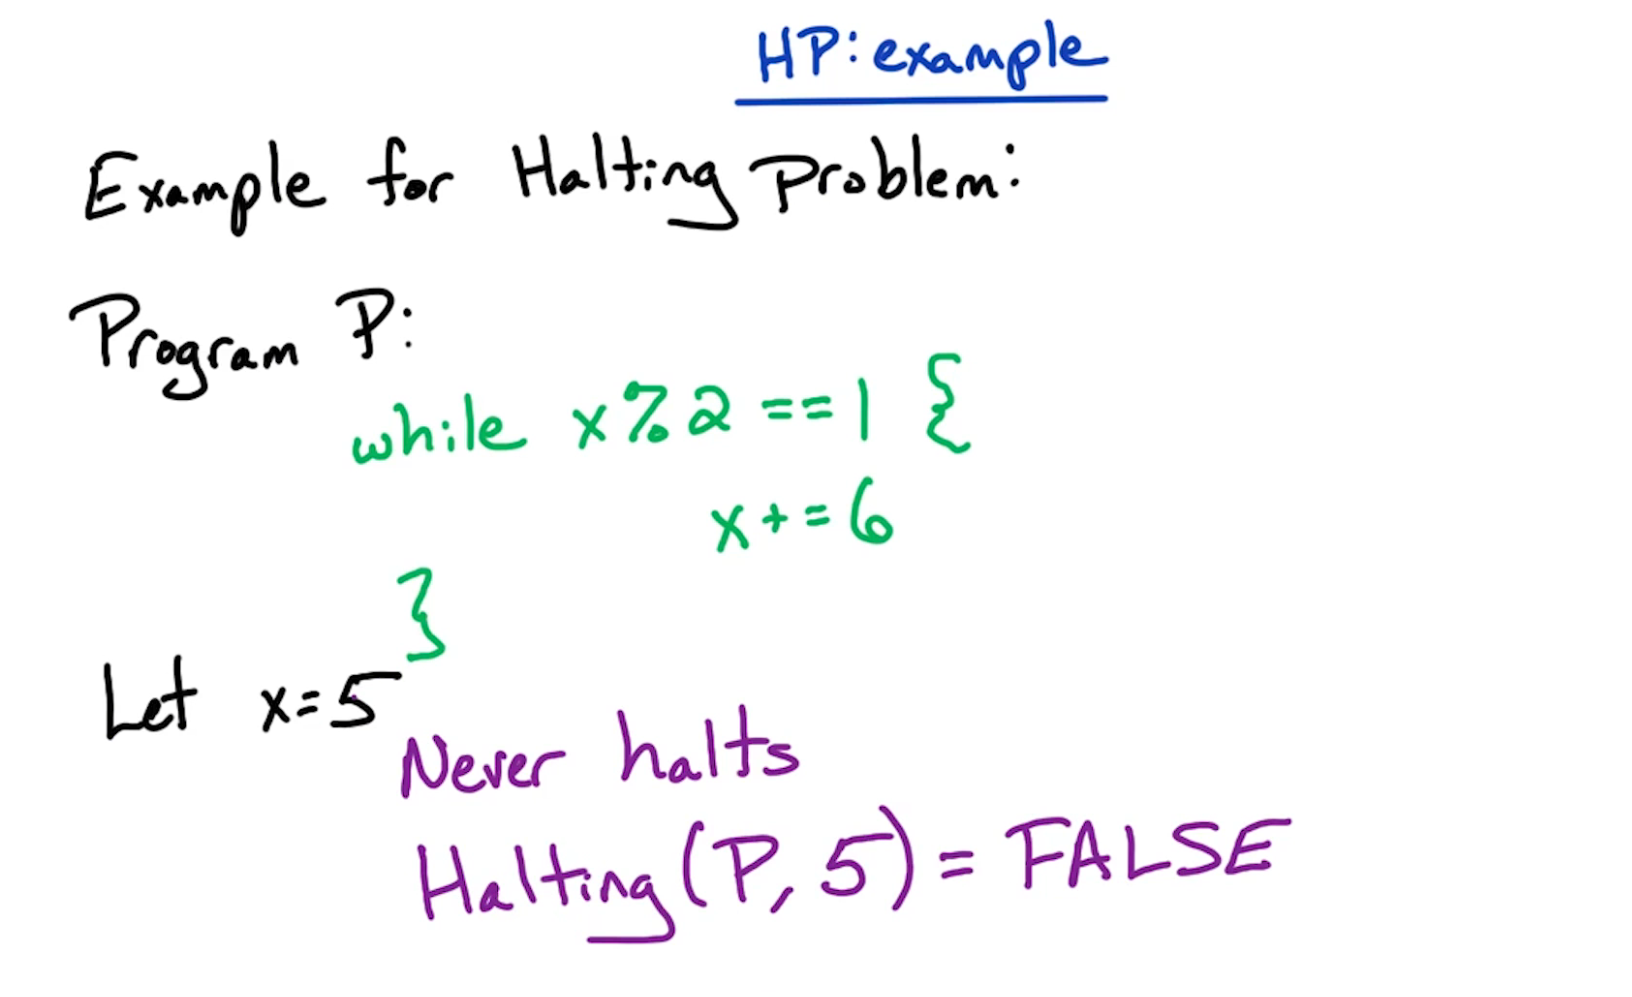 HP: example
Example for Halting Problem:
Program P:
while x%2 ==1 {
x+=6
}
Let x=5
Never halts
Halting(P, 5) = FALSE